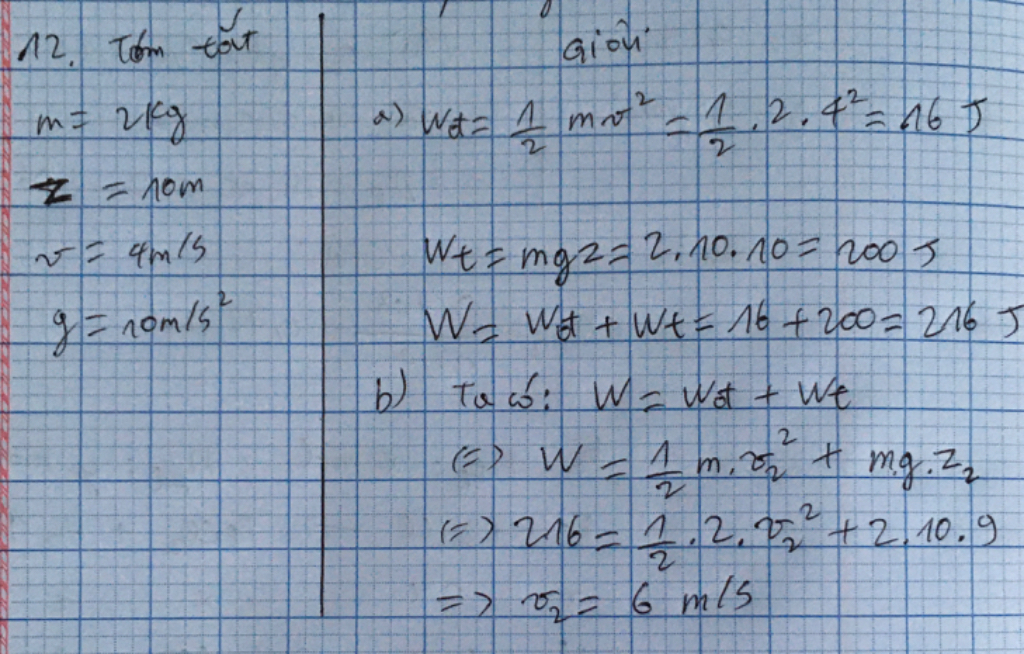 12. Tóm tắt
m = 2kg
z = 10m
v = 4m/s
g = 10m/s²
Giải
a) Wđ = 1/2 mv² = 1/2 . 2 . 4² = 16 J
Wt = mgz = 2.10.10 = 200 J
W = Wđ + Wt = 16 + 200 = 216 J
b) Ta có: W = Wđ + Wt
(=) W = 1/2 m.v₂² + m.g.z₂
(=) 216 = 1/2 . 2. v₂² + 2.10.9
=> v₂ = 6 m/s